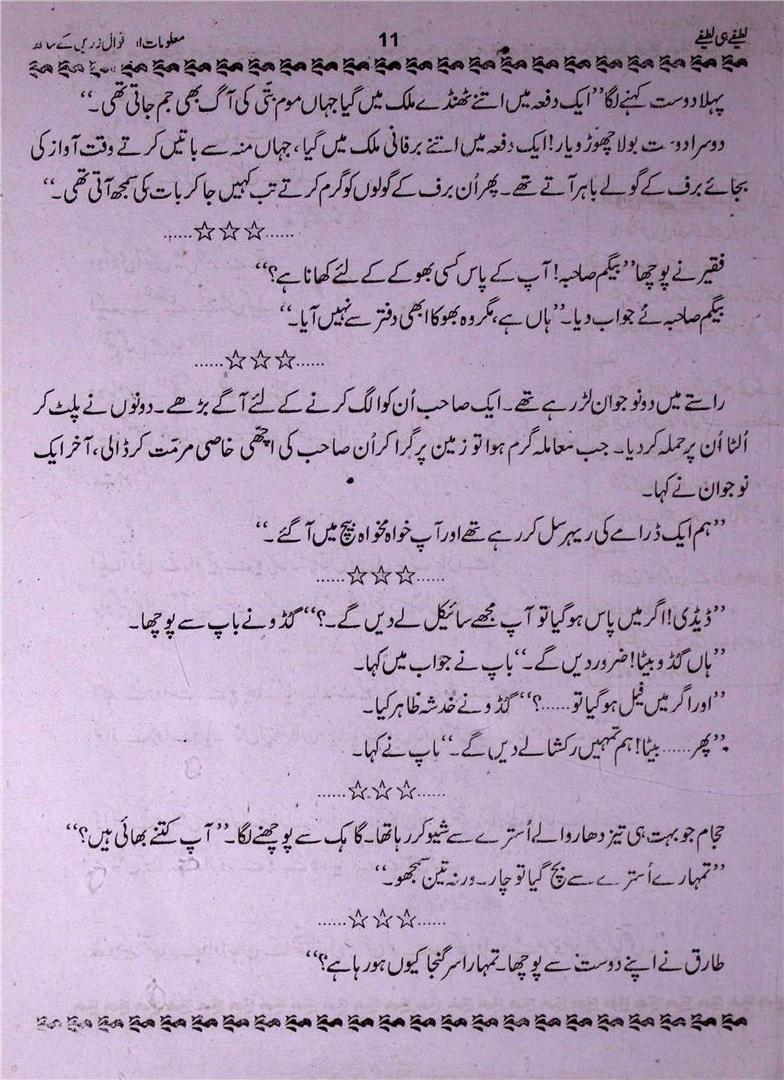 لطیفے ہی لطیفے
11
معلومات اقوال زریں کے ساتھ
پہلا دوست کہنے لگا ”ایک دفعہ میں اتنے ٹھنڈے ملک میں گیا جہاں موم بتّی کی آگ بھی جم جاتی تھی۔“
دوسرا دوست بولا چھوڑو یار! ایک دفعہ میں اتنے برفانی ملک میں گیا، جہاں منہ سے باتیں کرتے وقت آواز کی
بجائے برف کے گولے باہر آتے تھے۔ پھر اُن برف کے گولوں کو گرم کرتے تب کہیں جا کر بات کی سمجھ آتی تھی۔“
......☆☆☆......
فقیر نے پوچھا ”بیگم صاحبہ! آپ کے پاس کسی بھوکے کے لئے کھانا ہے؟“
بیگم صاحبہ نے جواب دیا۔ ”ہاں ہے، مگر وہ بھوکا ابھی دفتر سے نہیں آیا۔“
......☆☆☆......
راستے میں دو نوجوان لڑ رہے تھے۔ ایک صاحب اُن کو الگ کرنے کے لئے آگے بڑھے۔ دونوں نے پلٹ کر
اُلٹا اُن پر حملہ کر دیا۔ جب معاملہ گرم ہوا تو زمین پر گرا کر اُن صاحب کی اچھّی خاصی مرمّت کر ڈالی، آخر ایک
نوجوان نے کہا۔
”ہم ایک ڈرامے کی ریہرسل کر رہے تھے اور آپ خواہ مخواہ بیچ میں آ گئے۔“
......☆☆☆......
”ڈیڈی! اگر میں پاس ہو گیا تو آپ مجھے سائیکل لے دیں گے۔؟“ گڈو نے باپ سے پوچھا۔
”ہاں گڈو بیٹا! ضرور دیں گے۔“ باپ نے جواب میں کہا۔
”اور اگر میں فیل ہو گیا تو......؟“ گڈو نے خدشہ ظاہر کیا۔
”پھر...... بیٹا! ہم تمہیں رکشا لے دیں گے۔“ باپ نے کہا۔
......☆☆☆......
حجام جو بہت ہی تیز دھار والے اُسترے سے شیو کر رہا تھا۔ گاہک سے پوچھنے لگا۔ ”آپ کتنے بھائی ہیں؟“
”تمہارے اُسترے سے بچ گیا تو چار۔ ورنہ تین سمجھو۔“
......☆☆☆......
طارق نے اپنے دوست سے پوچھا۔ تمہارا سر گنجا کیوں ہو رہا ہے؟“